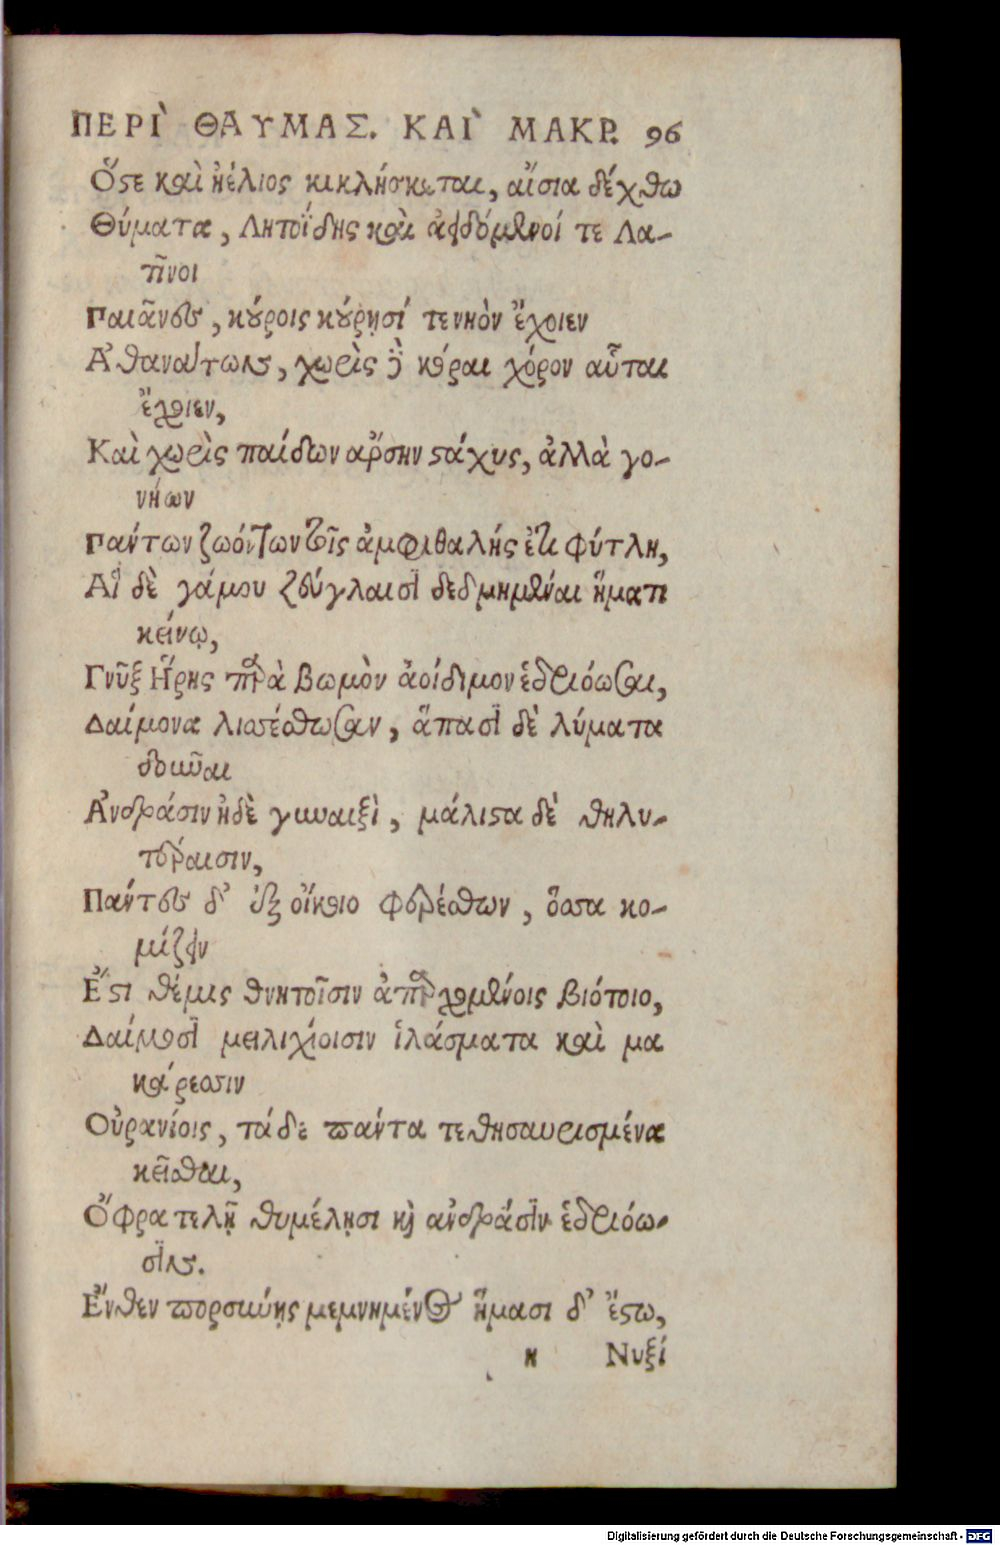 ΠΕΡΙ` ΘΑΥΜΑΣ. ΚΑΙ` ΜΑΚΡ. 96
Ὅϛε καὶ ἠέλιος κικλήσκεται, αἴσια δέχθω
Θύματα, Λητοΐδης καὶ ἀειδόμενοί τε Λα-
τῖνοι
Παιᾶνες, κούροις κούρῃσί τε νηὸν ἔχοιεν
Ἀθανάτων, χωρὶς δὲ κόραι χόρον αὖται
ἔχοιεν,
Καὶ χωρὶς παίδων ἄρσην ϛάχυς, ἀλλὰ γο-
νήων
Πάντων ζωόντων τοῖς ἀμφιθαλής ἔτι φύτλη,
Αἳ δὲ γάμου ζεύγλαισι δεδμημέναι ἤματι
κείνῳ,
Γνὺξ Ἥρης παρὰ βωμὸν ἀοίδιμον ἑδριόωσαι,
Δαίμονα λισσέσθωσαν, ἅπασι δὲ λύματα
δοῦναι
Ἀνδράσιν ἠδὲ γυναιξὶ, μάλιϛα δὲ θηλυ-
τέραισιν,
Πάντες δ' ἐξ οἴκοιο φερέσθων, ὅσσα κο-
μίζειν
Ἔϛι θέμις θνητοῖσιν ἀπαρχομένοις βιότοιο,
Δαίμοσι μειλιχίοισιν ἱλάσματα καὶ μα
κάρεσσιν
Οὐρανίοις, τάδε πάντα τεθησαυρισμένα
κεῖσθαι,
Ὄφρα τελῇ θυμέλῃσι καὶ ἀνδράσιν ἑδριόω-
σιν.
Ἔνθεν πορσύνῃς μεμνημένος ἤμασι δ' ἔϛω,
н Νυξί
Digitalisierung gefördert durch die Deutsche Forschungsgemeinschaft - DFG